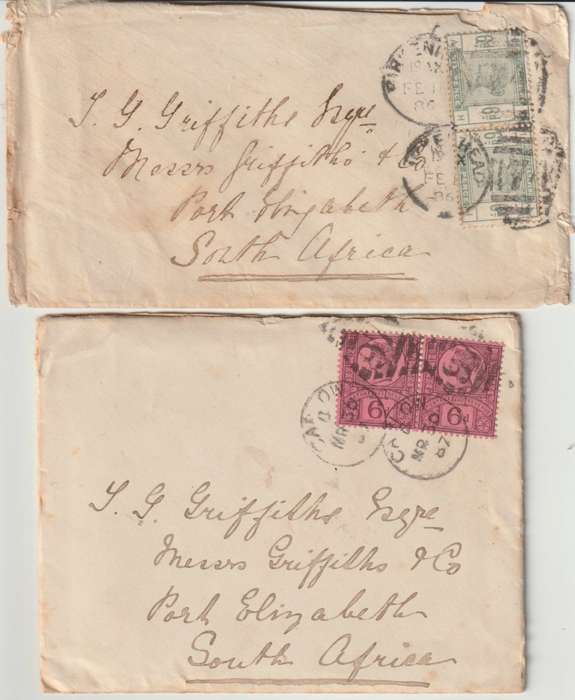 FE
86
HEAD
FE
86
T. G. Griffiths Esqre
Messrs Griffiths & Co
Port Elizabeth
South Africa
6d 6d
MR 30
MR 30
87
T. G. Griffiths Esqre
Messrs Griffiths & Co
Port Elizabeth
South Africa